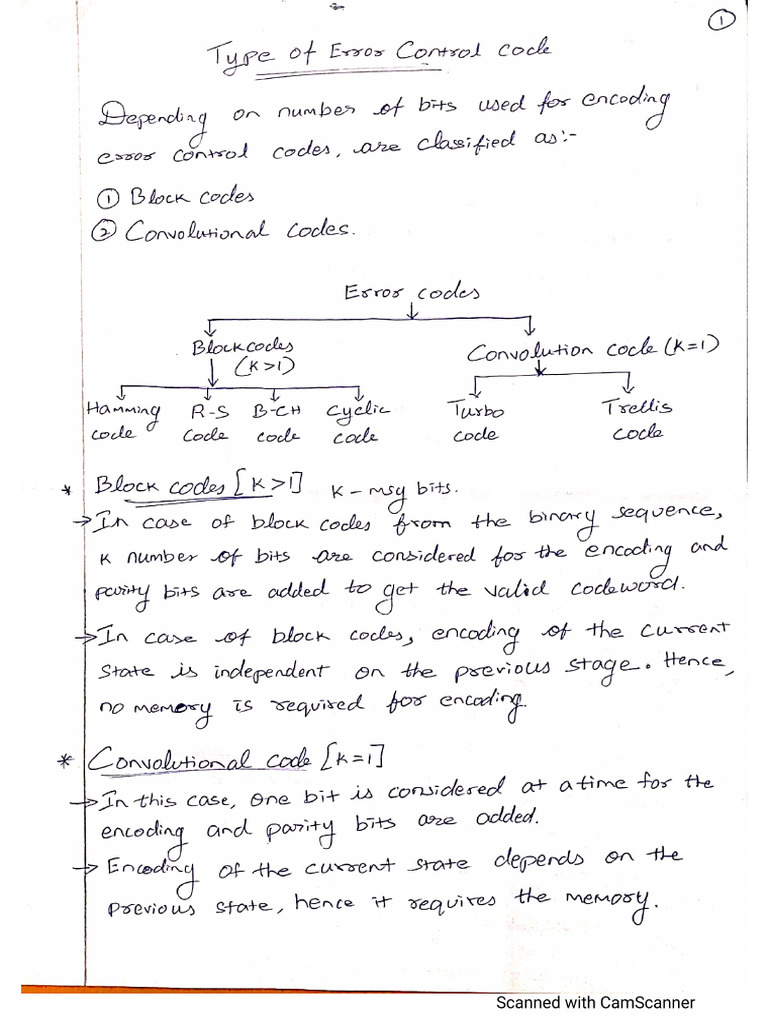 ①
Type of Error Control code
Depending on number of bits used for encoding
error control codes, are classified as:-
① Block codes
② Convolutional codes.
Error codes
Block codes
(K>1)
Convolution code (K=1)
Hamming code
R-S code
B-CH code
Cyclic code
Turbo code
Trellis code
* Block codes [K>1] K - msg bits.
→ In case of block codes from the binary sequence,
K number of bits are considered for the encoding and
parity bits are added to get the valid codeword.
→ In case of block codes, encoding of the current
state is independent on the previous stage. Hence,
no memory is required for encoding.
* Convolutional code [K=1]
→ In this case, one bit is considered at a time for the
encoding and parity bits are added.
→ Encoding of the current state depends on the
previous state, hence it requires the memory.
Scanned with CamScanner